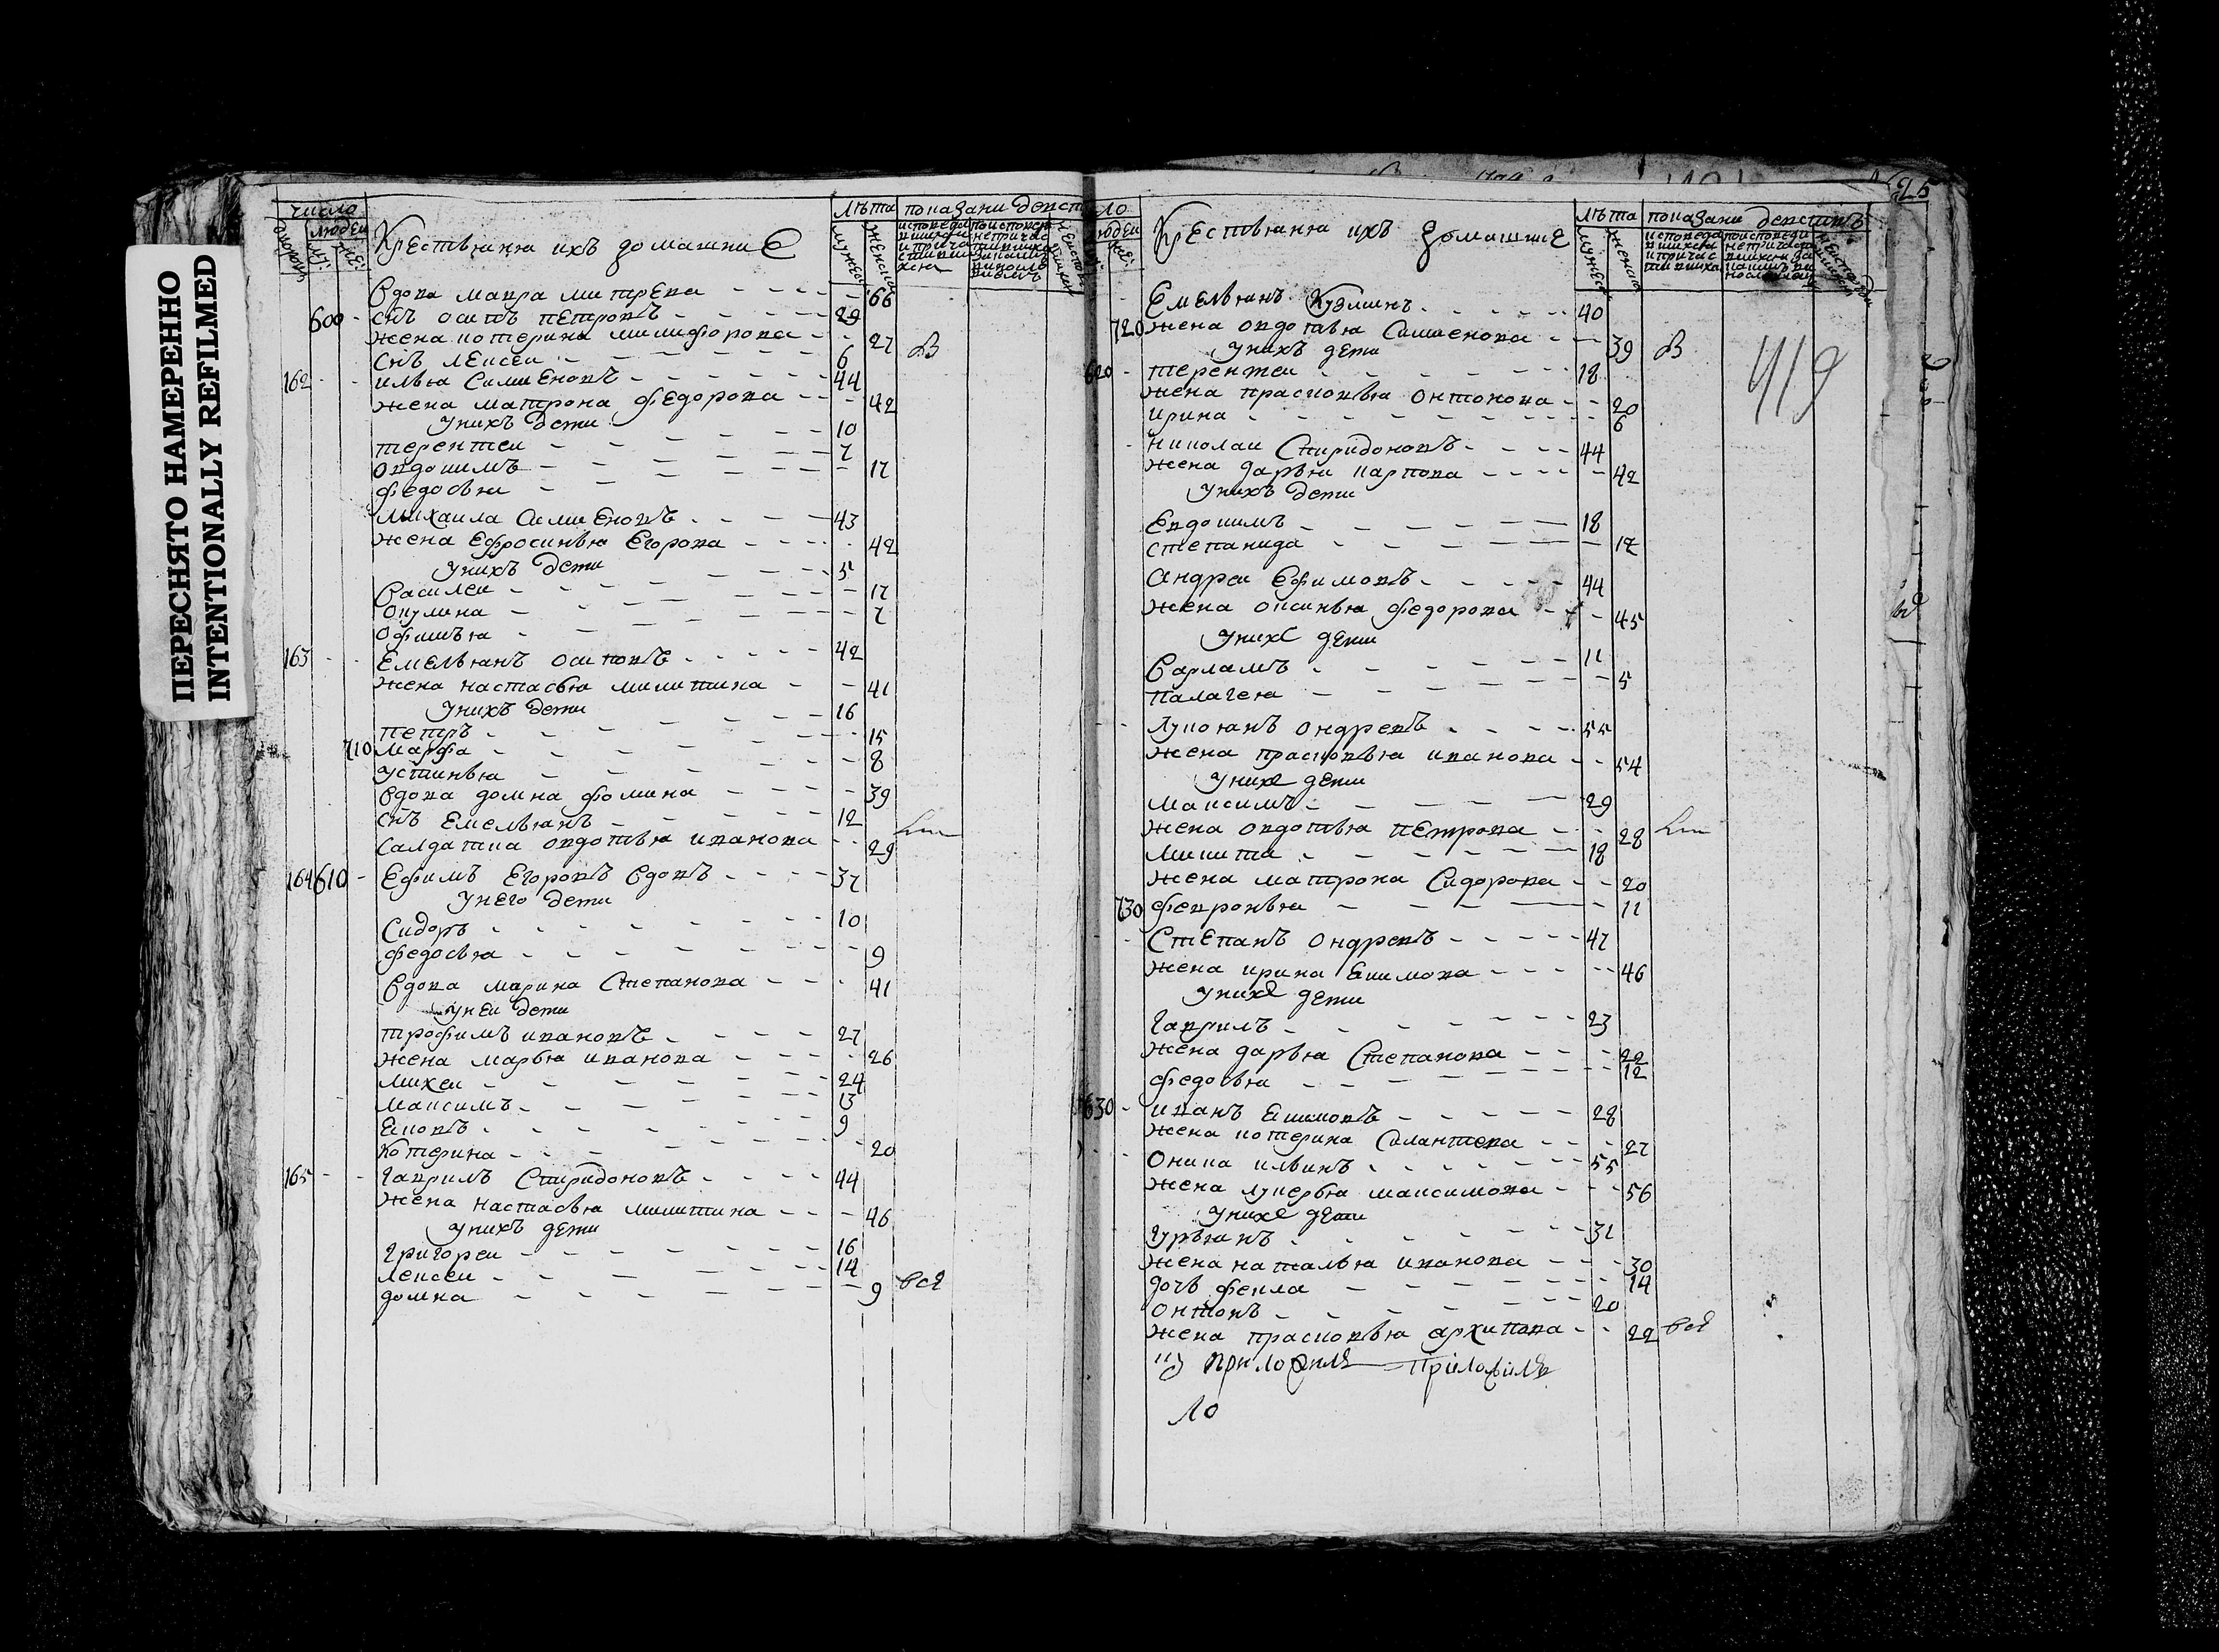 ПЕРЕСНЯТО НАМЕРЕННО
INTENTIONALLY REFILMED
число
людеи
Крествяня ихъ домашние
лѣта
показани депст
Вдова мавра митрева 66
600 снъ осипъ петровъ 29
жена котерина микифорова 27
снъ лексеи 6 В
162 илья Симионовъ 44
жена матрона федорова 42
У нихъ дети
терентеи 10
овдокимъ 7
федосья 17
михаила Симионовъ 43
жена Ефросинья Егорова 42
У нихъ дети
Василеи 5
окулина 17
офимья 7
163 Емельянъ осиповъ 42
жена настасья микитина 41
У нихъ дети
петръ 16
710 марфа 15
устинья 8
Вдова домна фомина 39
снъ Емельянъ 12
Салдатка овдотья иванова 29
164 610 Ефимъ Егоровъ Вдовъ 37
У него дети
Сидоръ 10
федосья 9
Вдова марина Степанова 41
у неи дети
трофимъ ивановъ 27
жена марья иванова 26
михеи 24
максимъ 13
Яковъ 9
котерина 20
165 Гаврилъ Спиридоновъ 44
жена настасья микитина 46
У нихъ дети
Григореи 16
лексеи 14
домна 9 всѣ
25
ло
людеи
Крествяня ихъ домашние
лѣта
показани депствъ
Емельянъ Кузминъ 40
720 жена овдотья Симионова 39 В
У нихъ дети
620 терентеи 18
жена прасковья онтонова 20
ирина 6
419
николаи Спиридоновъ 44
жена дарья карпова 42
У нихъ дети
Евдокимъ 18
степанида 12
Андреи Ефимовъ 44
жена оксинья федорова 45
У нихъ дети
Варламъ 11
палагея 5
лукоянъ ондревъ 55
жена прасковья иванова 54
У нихъ дети
максимъ 29
жена овдотья петрова 28
микита 18
жена матрона Сидорова 20
730 февронья 11
Степанъ ондревъ 47
жена ирина Екимова 46
У нихъ дети
Гаврилъ 23
жена дарья Степанова 22
федосья 12
630 иванъ Екимовъ 28
жена котерина Силантева 27
оника ильинъ 55
жена лукерья максимова 56
У нихъ дети
Гурьянъ 31
жена наталья иванова 30
дочь фекла 14
онтонъ 20
жена прасковья архипова 22 всѣ
приложилъ
ло